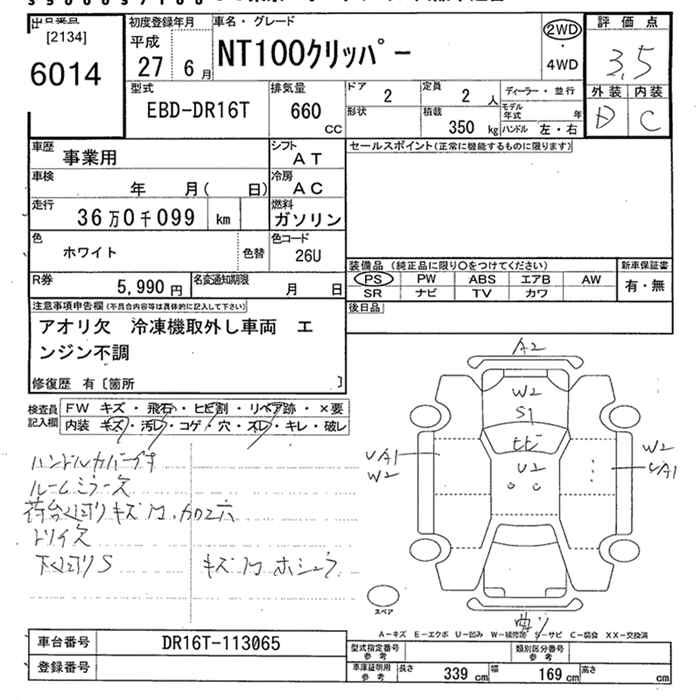 出品番号
[2134]
6014
初度登録年月
平成
27 6月
車名・グレード
NT100クリッパー
2WD
・
4WD
評価点
3.5
外装 内装
D C
型式
EBD-DR16T
排気量
660
CC
ドア
2
定員
2人
形状
積載
350 kg
ディーラー・並行
モデル年式 年
ハンドル 左・右
車歴
事業用
シフト
AT
車検
年 月( 日)
冷房
AC
走行
36万0千099 km
燃料
ガソリン
色
ホワイト
色替
色コード
26U
R券
5,990円
名変通知期限
月 日
セールスポイント(正常に機能するものに限ります)
装備品(純正品に限り〇をつけてください)
PS PW ABS エアB AW
SR ナビ TV カワ
新車保証書
有・無
後日品
注意事項申告欄(不具合内容等は具体的に記入して下さい)
アオリ欠 冷凍機取外し車両 エ
ンジン不調
修復歴 有〔箇所 〕
検査員記入欄
FW キズ・飛石・ヒビ割・リペア跡・×要
内装 キズ・汚レ・コゲ・穴・スレ・キレ・破レ
ハンドルカバー付
ルームミラー欠
荷台廻り キズ凹 カロエ穴
トリイ欠
下廻りS キズ凹 ホシュウ
A2
W2
S1
ヒビ
U2
UA1
W2
W2
UA1
スペア
A-キズ E-エクボ U-凹み W-補修跡 S-サビ C-腐食 XX-交換済
車台番号
DR16T-113065
登録番号
型式指定番号
参考
類別区分番号
参考
車庫証明用
参考
長さ 339 cm
幅 169 cm
高さ cm